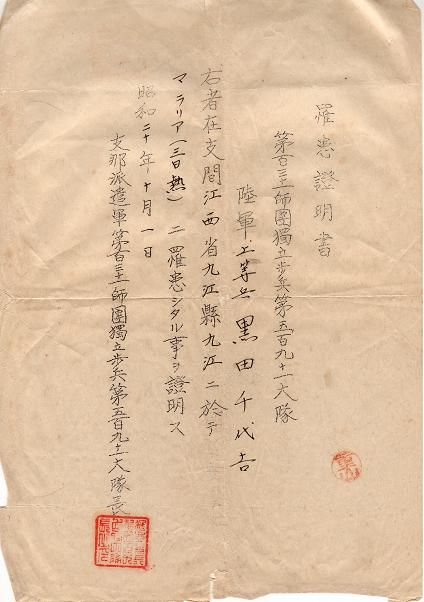 罹患證明書
第百三十一師團獨立步兵第五百九十一大隊
陸軍上等兵 黒田千代吉
右者在支間江西省九江縣九江ニ於テ
マラリア(三日熱)ニ罹患シタル事ヲ證明ス
昭和二十年十月一日
支那派遣軍第百三十一師團獨立步兵第五百九十一大隊長